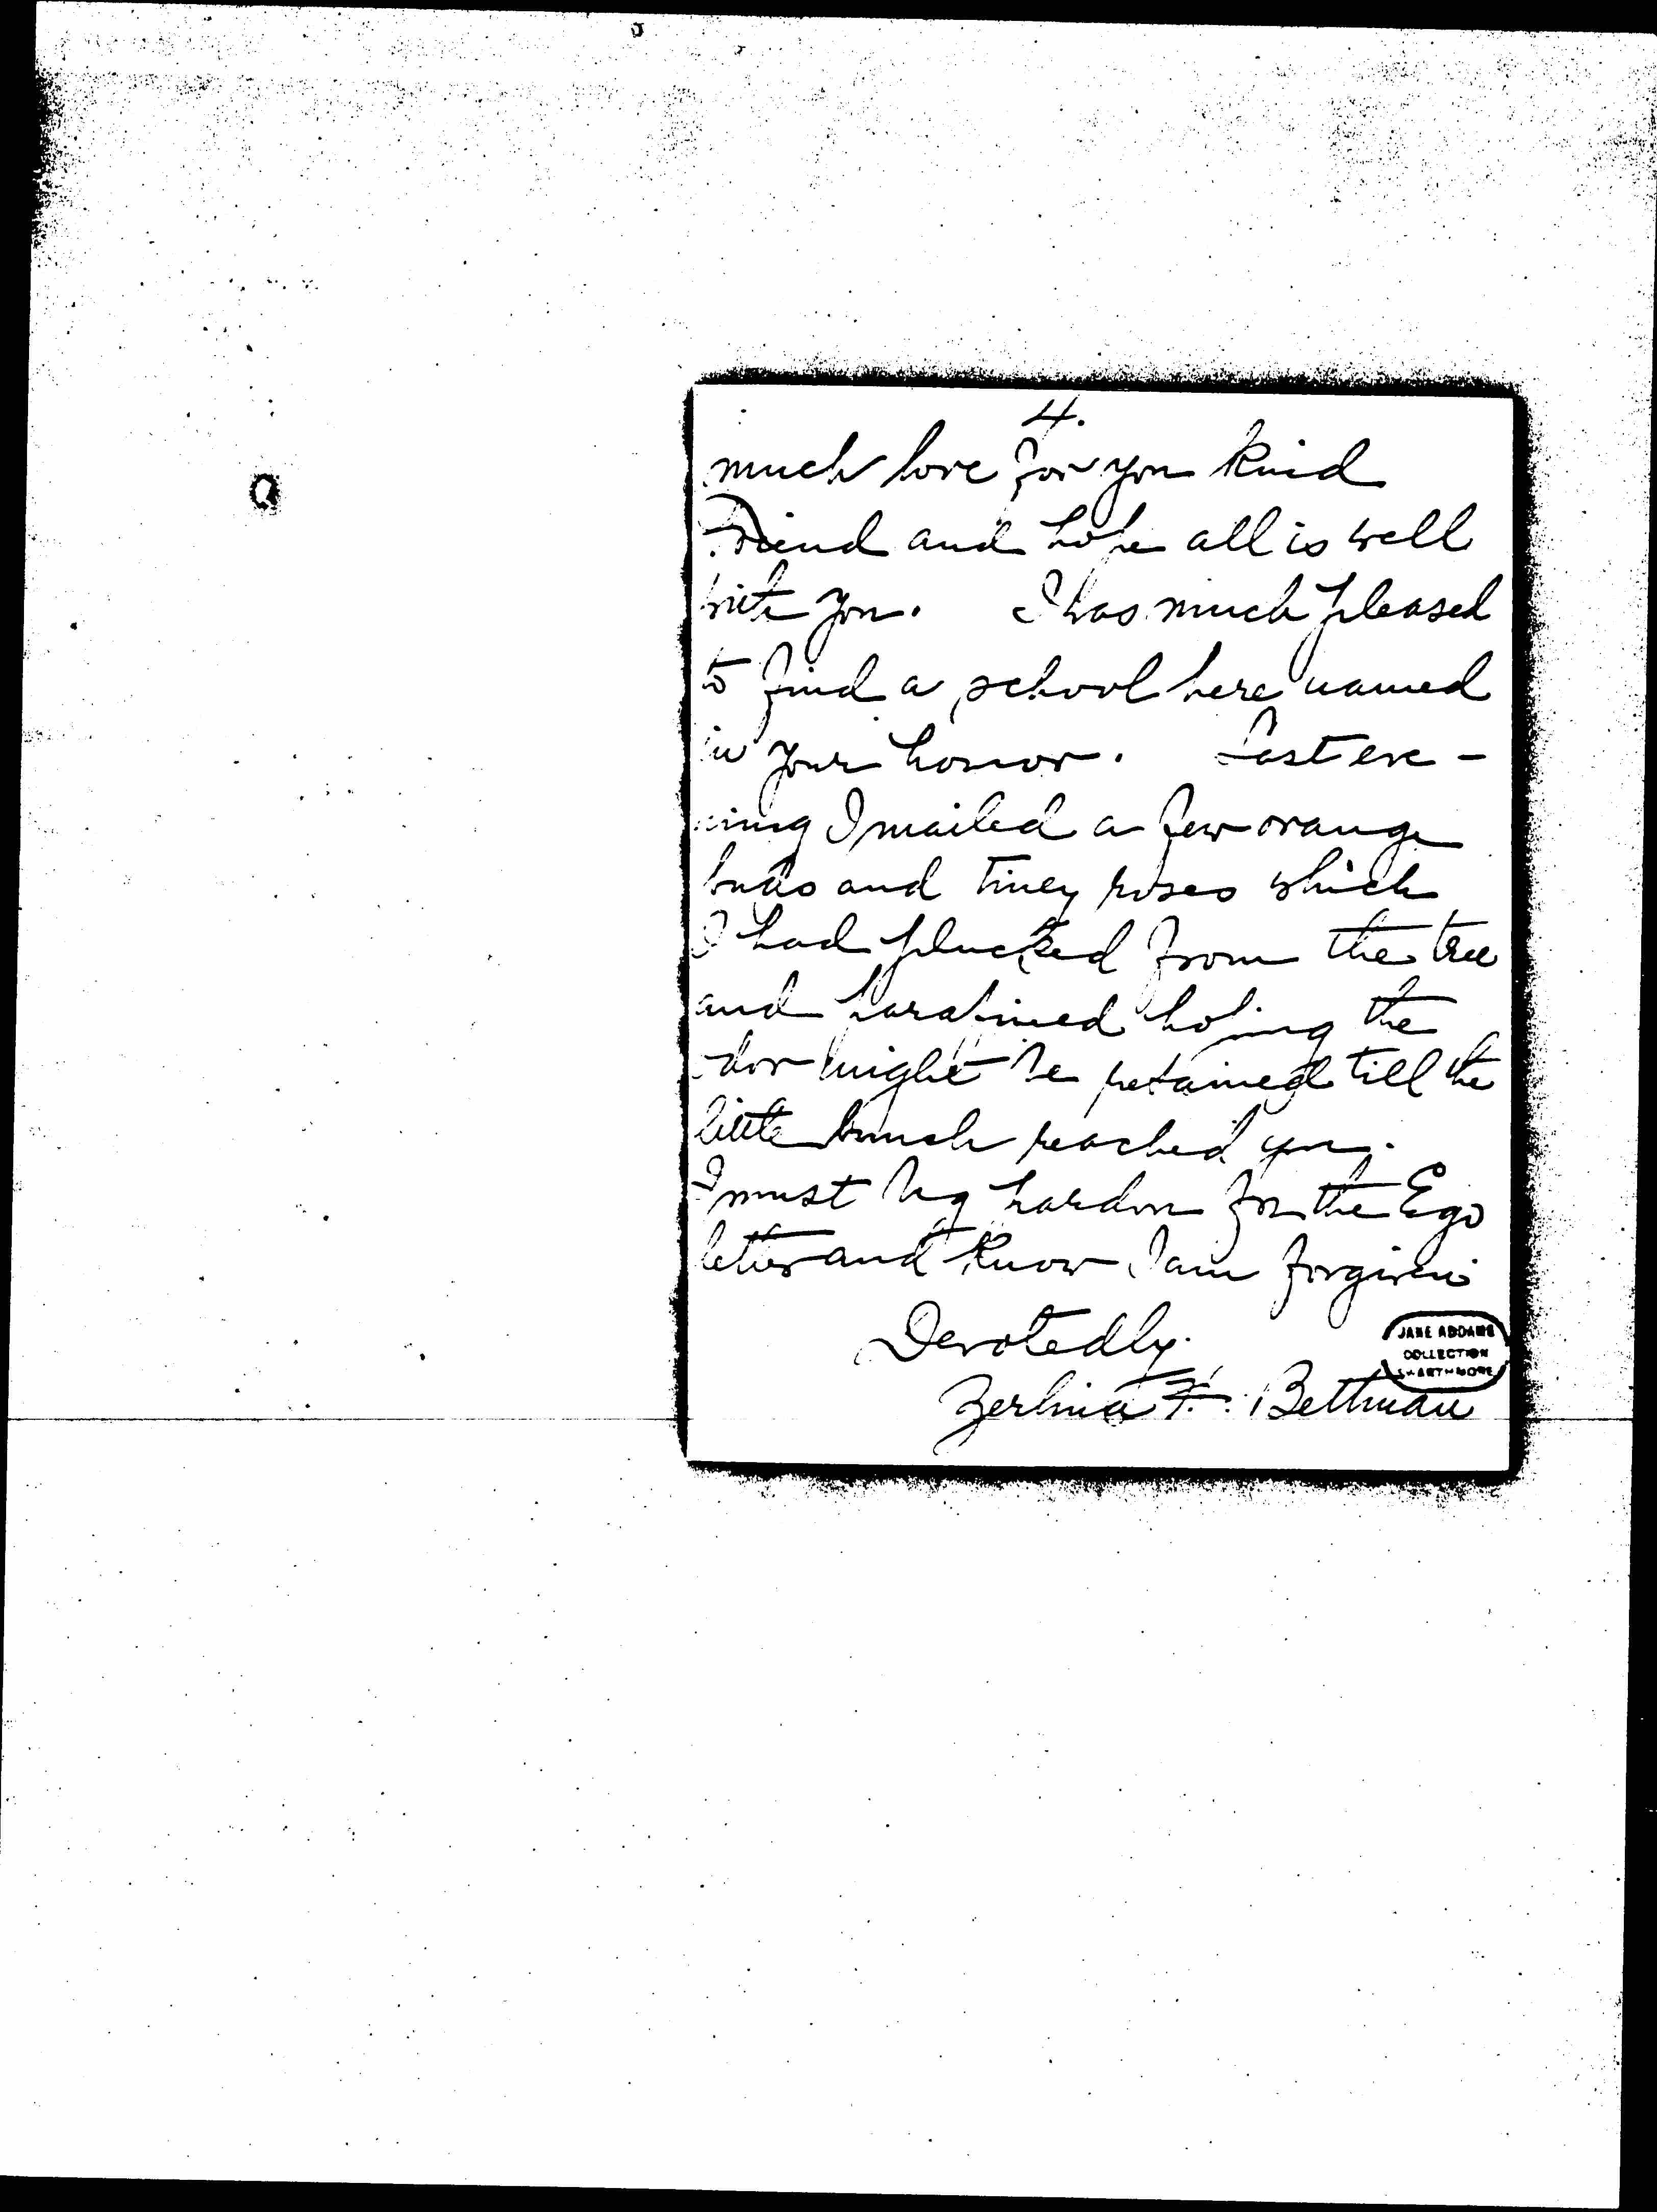 4.
much love for you kind
Friend and hope all is well
with you. I was much pleased
to find a school here named
in your honor. Last eve-
ning I mailed a few orange
buds and tiney roses which
I had plucked from the tree
and parafined hoping the
odor might be retained till the
little bunch reached you.
I must beg pardon for the Ego
letter and know I am forgiven
Devotedly.
JANE ADDAMS
COLLECTION
SWARTHMORE
Zerlina F. Bettman